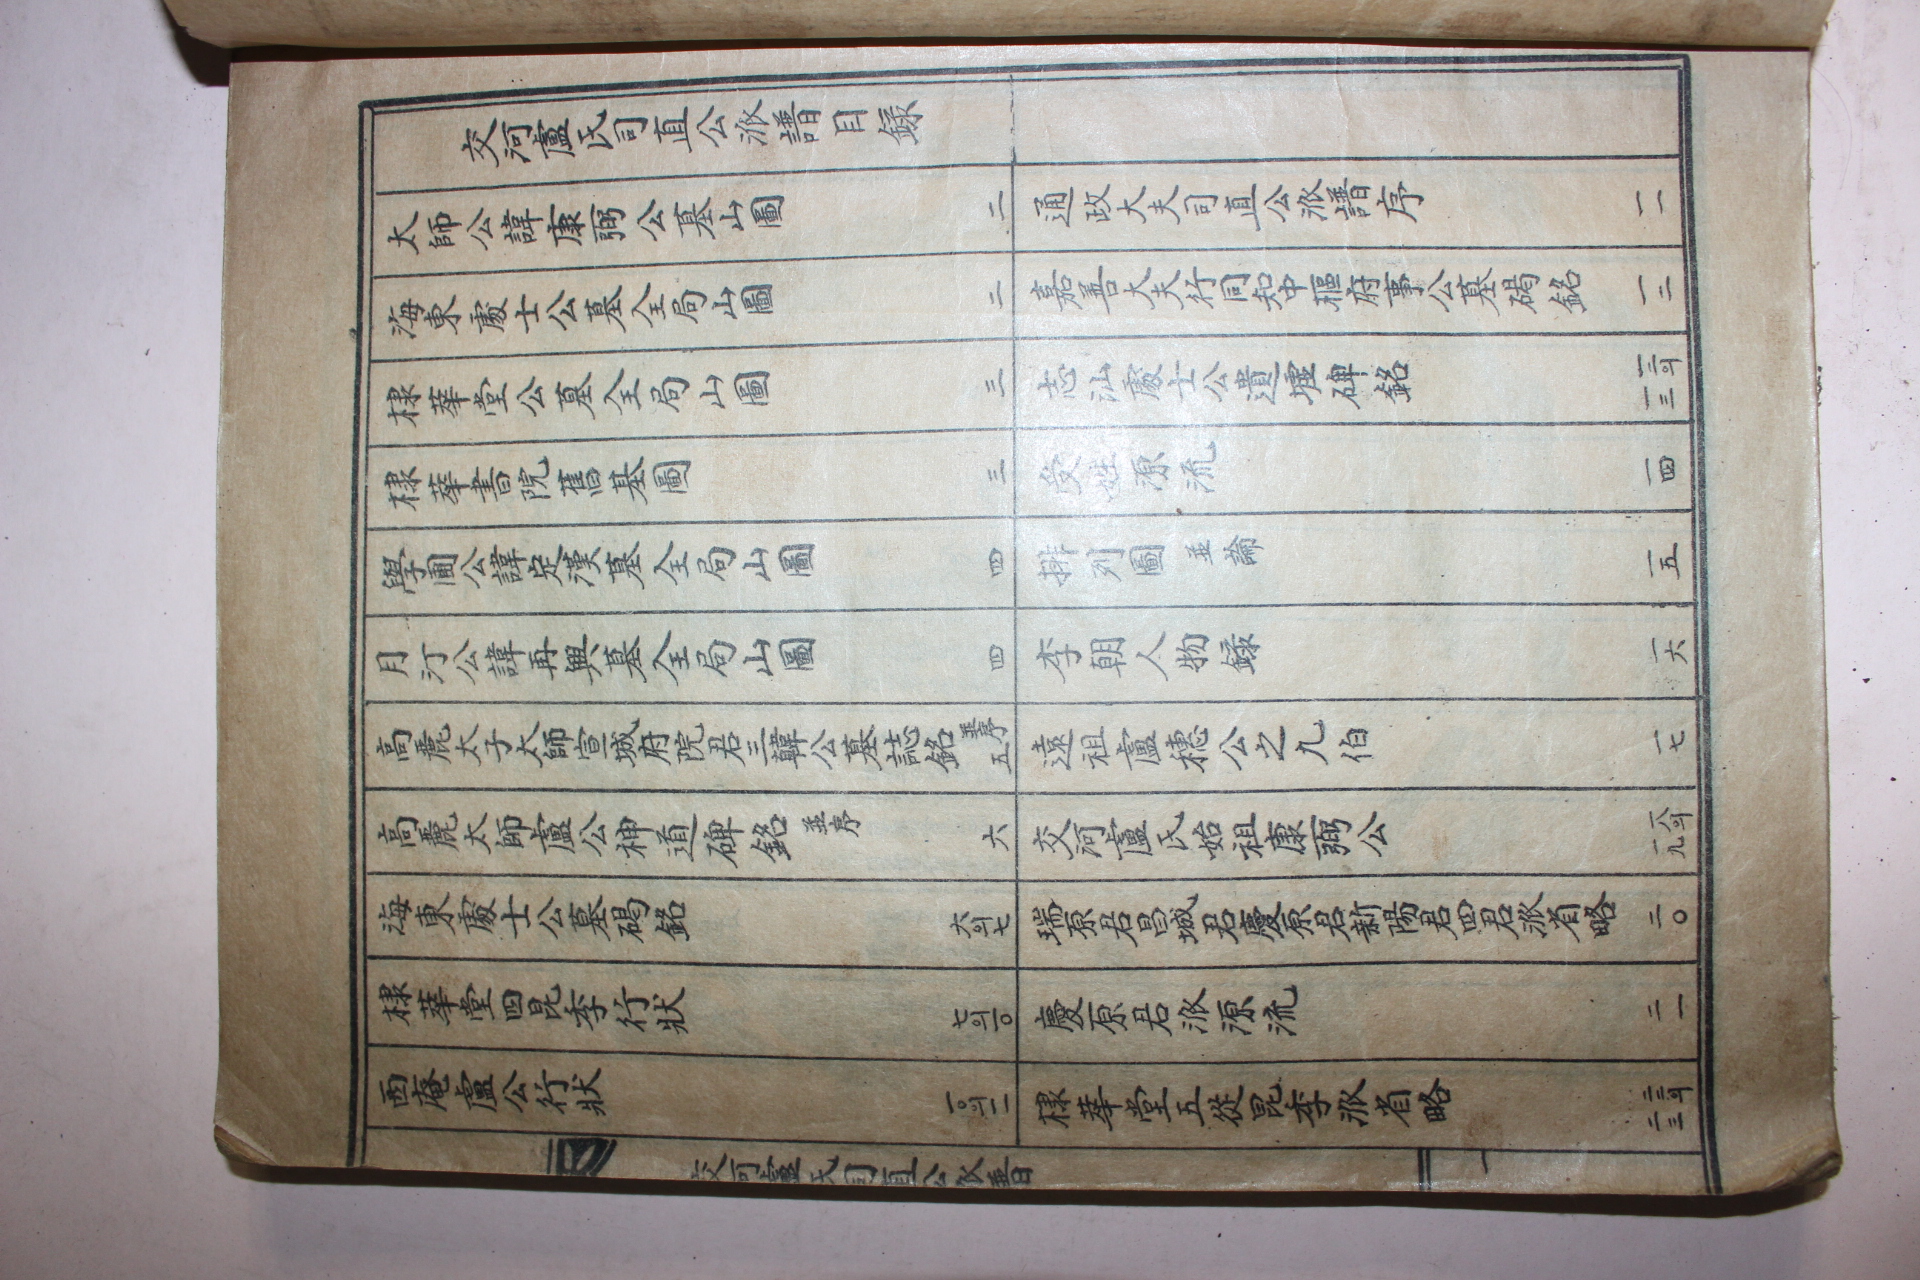 交河盧氏司直公派譜目録
太師公諱康弼公墓山圖 二
海東處士公墓全局山圖 二
棣華堂公墓全局山圖 三
棣華書院舊基圖 三
學圃公諱定漢墓全局山圖 四
月汀公諱再興墓全局山圖 四
高麗太子太師宣城府院君三韓公墓誌銘並序 五
高麗太師盧公神道碑銘 並序 六
海東處士公墓碣銘 六의七
棣華堂四昆季行狀 七의一〇
西庵盧公行狀 一〇의一一
通政大夫司直公派譜序 一二
嘉善大夫行同知中樞府事公墓碣銘 一二
志汕處士公遺墟碑銘 一二의一三
受姓源流 一四
排列圖 並論 一五
李朝人物録 一六
遠祖盧穗公之九伯 一七
交河盧氏始祖康弼公 一八의一九
瑞原君昌城君慶原君新陽君四君派省略 二〇
慶原君派源流 二一
棣華堂五從昆季派省略 二二의二三
交河盧氏司直公派譜
一